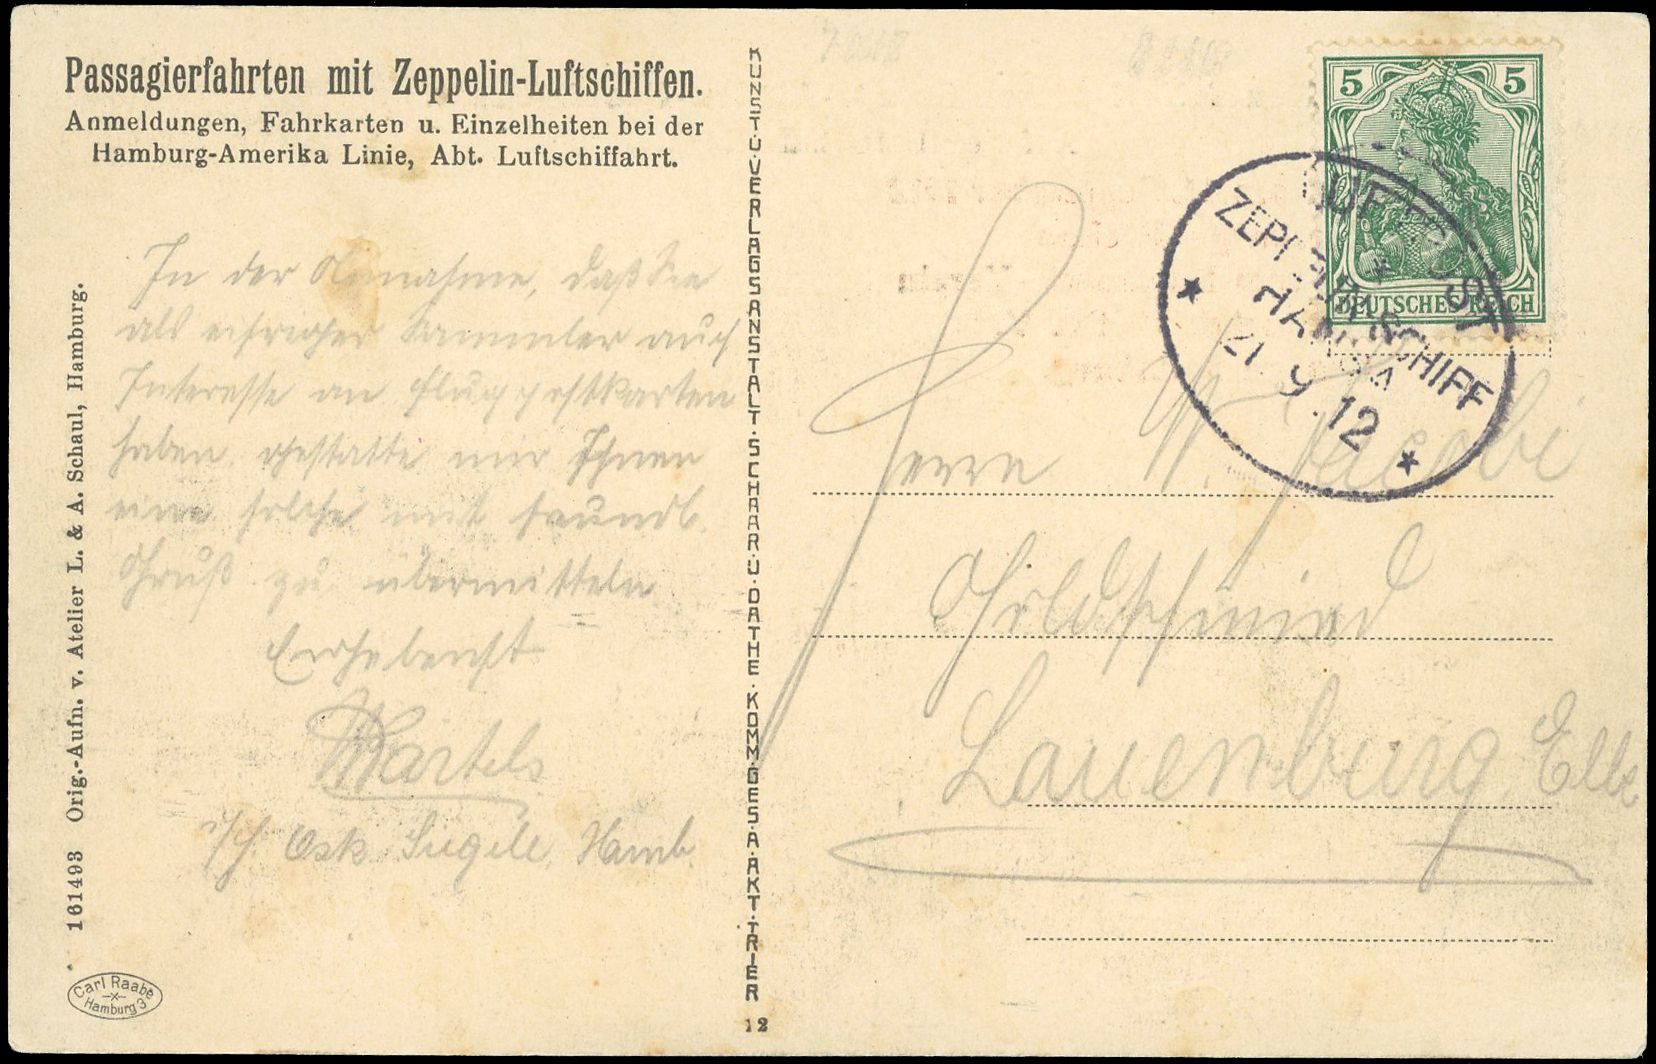 Passagierfahrten mit Zeppelin-Luftschiffen.
Anmeldungen, Fahrkarten u. Einzelheiten bei der
Hamburg-Amerika Linie, Abt. Luftschiffahrt.
In der Annahme, daß Sie
als eifriger Sammler auch
Interesse an Flugpostkarten
haben gestatte mir Ihnen
eine solche mit freundl.
Gruß zu übermitteln
Ergebenst
Bartels
Osk. Hamb.
161493 Orig.-Aufn. v. Atelier L. & A. Schaul, Hamburg.
Carl Raabe
Hamburg 3
KUNST.U.VERLAGSANSTALT.SCHAAR.U.DATHE.KOMM.GES.A.AKT.TRIER
12
5 5
DEUTSCHES REICH
LUFTPOST
ZEPPELINLUFTSCHIFF
HANSA
21.9.12
Herrn W. Jacobi
Goldschmied
Lauenburg Elbe